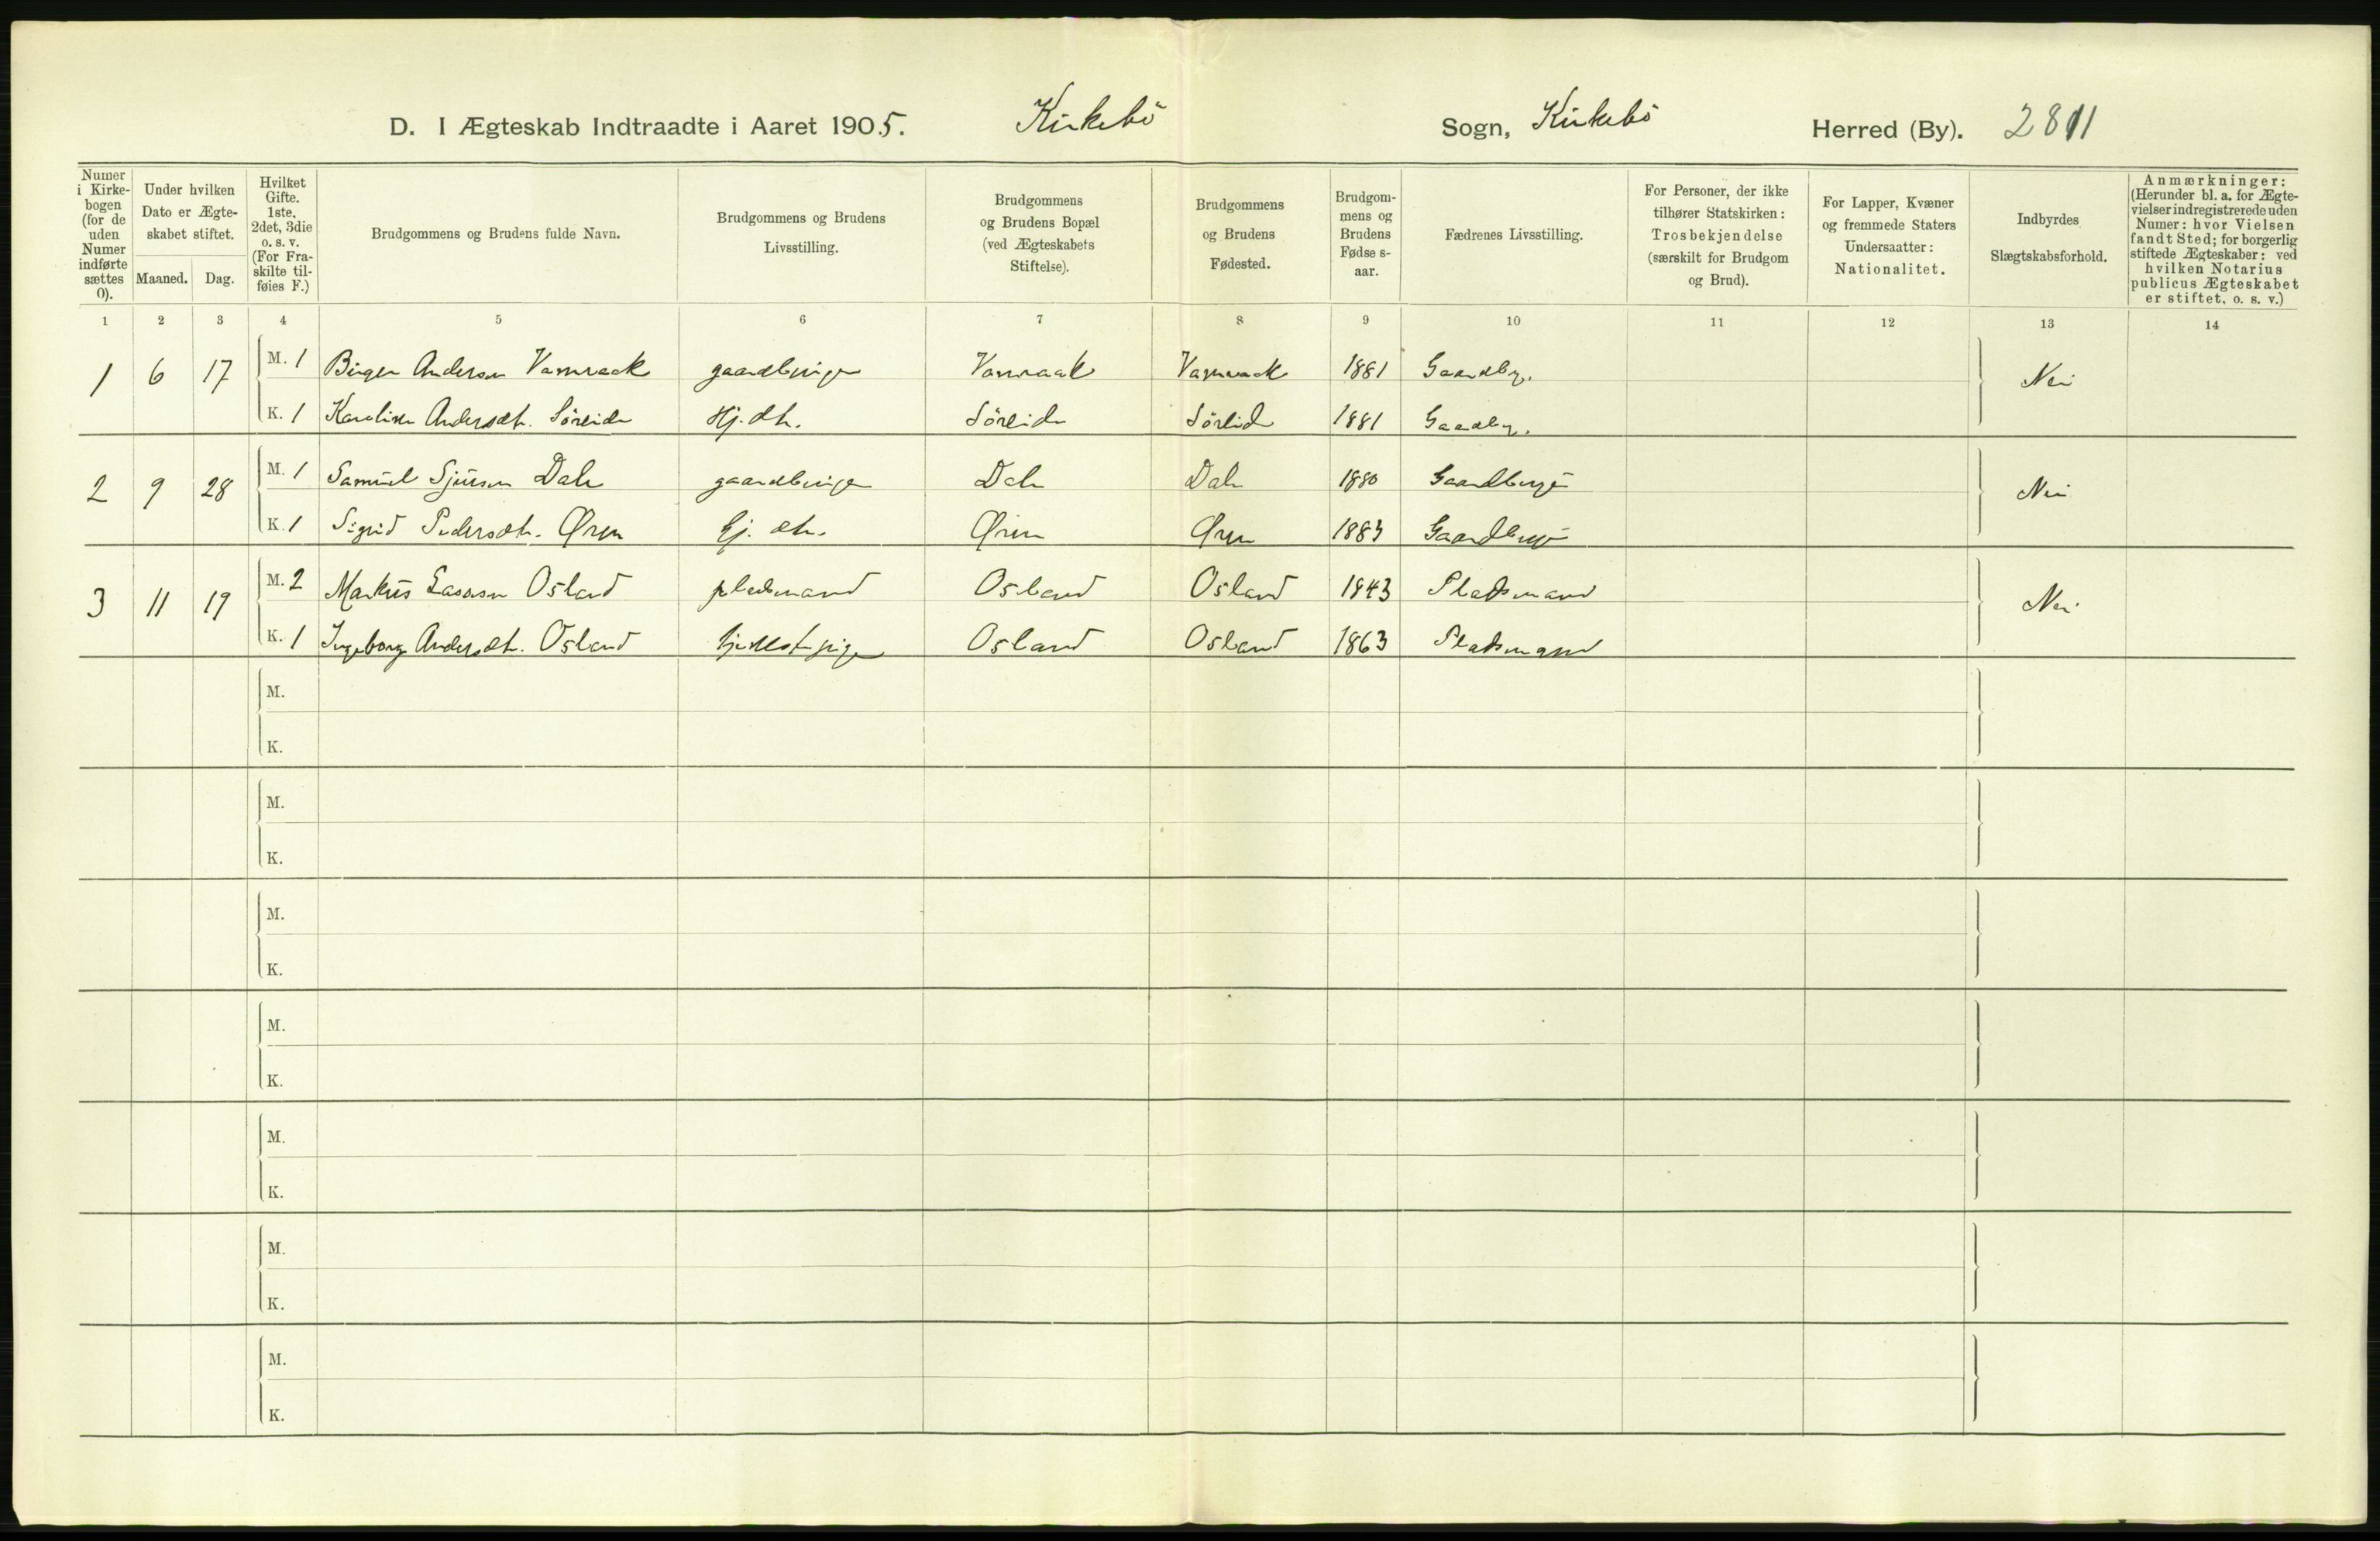 D. I Ægteskab Indtraadte i Aaret 1905. Kirkebö Sogn, Kirkebö Herred (By). 2811
Numer i Kirke-bogen (for de uden Numer indførte sættes 0).
Under hvilken Dato er Ægte-skabet stiftet.
Maaned. Dag.
Hvilket Gifte. 1ste, 2det, 3die o. s. v. (For Fra-skilte til-føies F.)
Brudgommens og Brudens fulde Navn.
Brudgommens og Brudens Livsstilling.
Brudgommens og Brudens Bopæl (ved Ægteskabets Stiftelse).
Brudgommens og Brudens Fødested.
Brudgom-mens og Brudens Fødse s-aar.
Fædrenes Livsstilling.
For Personer, der ikke tilhører Statskirken: Trosbekjendelse (særskilt for Brudgom og Brud).
For Lapper, Kvæner og fremmede Staters Undersaatter: Nationalitet.
Indbyrdes Slægtskabsforhold.
Anmærkninger: (Herunder bl. a. for Ægte-vielser indregistrerede uden Numer: hvor Vielsen fandt Sted; for borgerlig stiftede Ægteskaber: ved hvilken Notarius publicus Ægteskabet er stiftet, o. s. v.)
1 2 3 4 5 6 7 8 9 10 11 12 13 14
1 6 17 M. 1 Birger Andersen Vamraak gaardbruger Vamraak Vamraak 1881 Gaardbr. Nei
K. 1 Karoline Andersdt. Söreide Hj. dt. Söreide Söreide 1881 Gaardbr.
2 9 28 M. 1 Samuel Sjursen Dale gaardbruger Dale Dale 1880 Gaardbruger Nei
K. 1 Sigrid Pedersdt. Øren Hj. dt. Øren Øren 1883 Gaardbruger
3 11 19 M. 2 Markus Lassesen Osland pladsmand Osland Osland 1843 Pladsmand Nei
K. 1 Ingeborg Andersdt. Osland Osland Osland 1863 Pladsmand
M.
K.
M.
K.
M.
K.
M.
K.
M.
K.
M.
K.
M.
K.